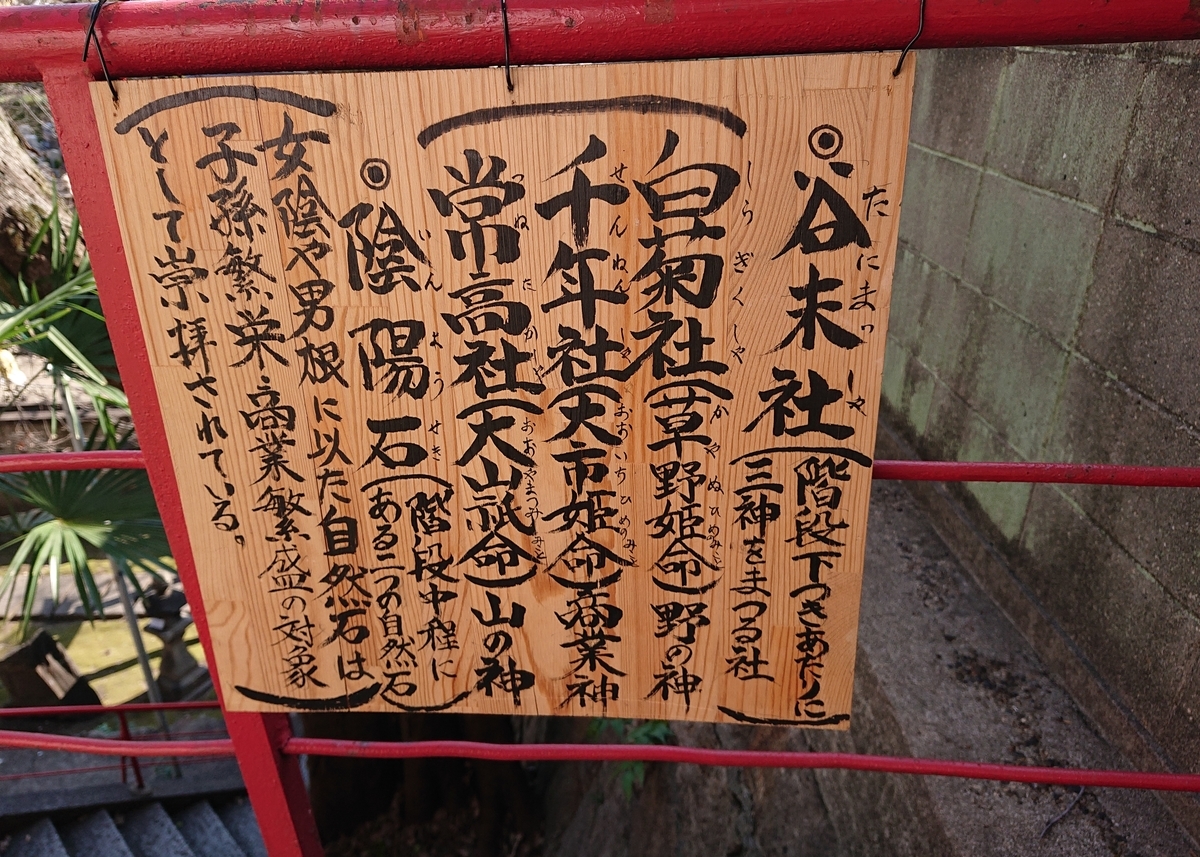 たにまっしゃ
◎谷末社（階段下つきあたりに
三神をまつる社）
しらぎくしゃ かやぬひめみこと
（白菊社（草野姫命）野の神
せんねんしゃ おおいちひめみこと
千年社（大市姫命）商業神
つねたかしゃ おおやまつみみこと
常高社（大山祇命）山の神
いんようせき
◎陰陽石（階段中程に
ある二つの自然石）
（女陰や男根に以た自然石は
子孫繁栄商業繁盛の対象
として崇拝されている。）